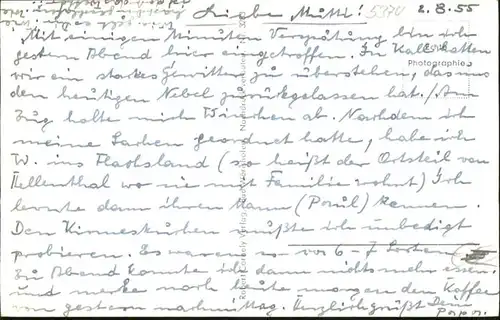 Liebe Mutti! 5370 2.8.55
Mit einigen Minuten Verspätung bin ich
gestern Abend hier eingetroffen. In Kall hatten
wir ein starkes Gewitter zu überstehen, das uns
Photographie
den heutigen Nebel zurückgelassen hat. Am
Zug holte mich ab. Nachdem ich
meine Sachen geordnet hatte, habe ich
W. ins Flachsland (so heißt der Ortsteil von
Hellenthal wo sie mit Familie wohnt) Ich
lernte dann ihren Mann (Paul) kennen.
Den Kirmeskuchen mußte ich unbedigt
probieren. Es waren so vor 6-7 Sorten
Zu Abend konnte ich dann nichts mehr essen.
und merke noch heute morgen den Kaffee
von gestern nachmittag. grüßt Dein
Papa.